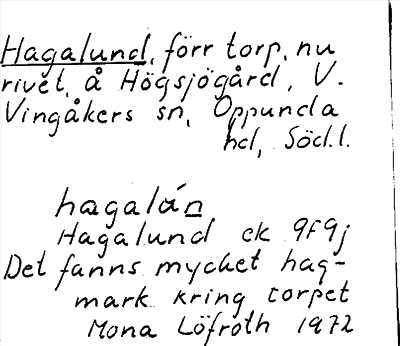 Hagalund, förr torp, nu
rivet, å Högsjögård, V.
Vingåkers sn, Oppunda
hd, Södl.
hagalún
Hagalund ek 9F9j
Det fanns mycket hag-
mark kring torpet
Mona Löfroth 1972